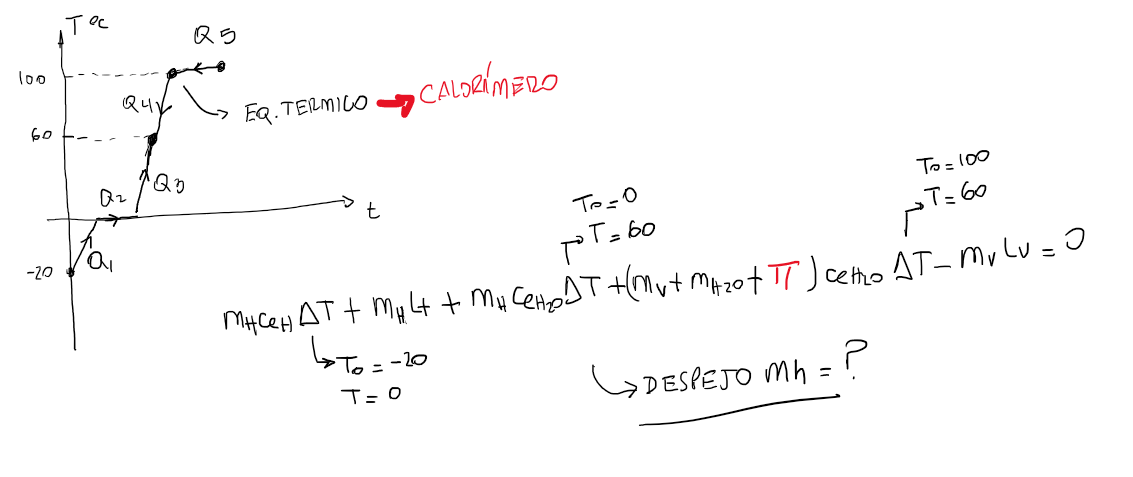 T °C
Q5
100
Q4
EQ. TERMICO → CALORÍMERO
60
Q3
Q2
t
-20
Q1
T₀=0
T=60
T₀=100
T=60
mHCeH ΔT + mHLf + mHCeH2O ΔT + (mv + mH2O + π) CeH2O ΔT - mvLv = 0
T₀ = -20
T = 0
DESPEJO mh = ?